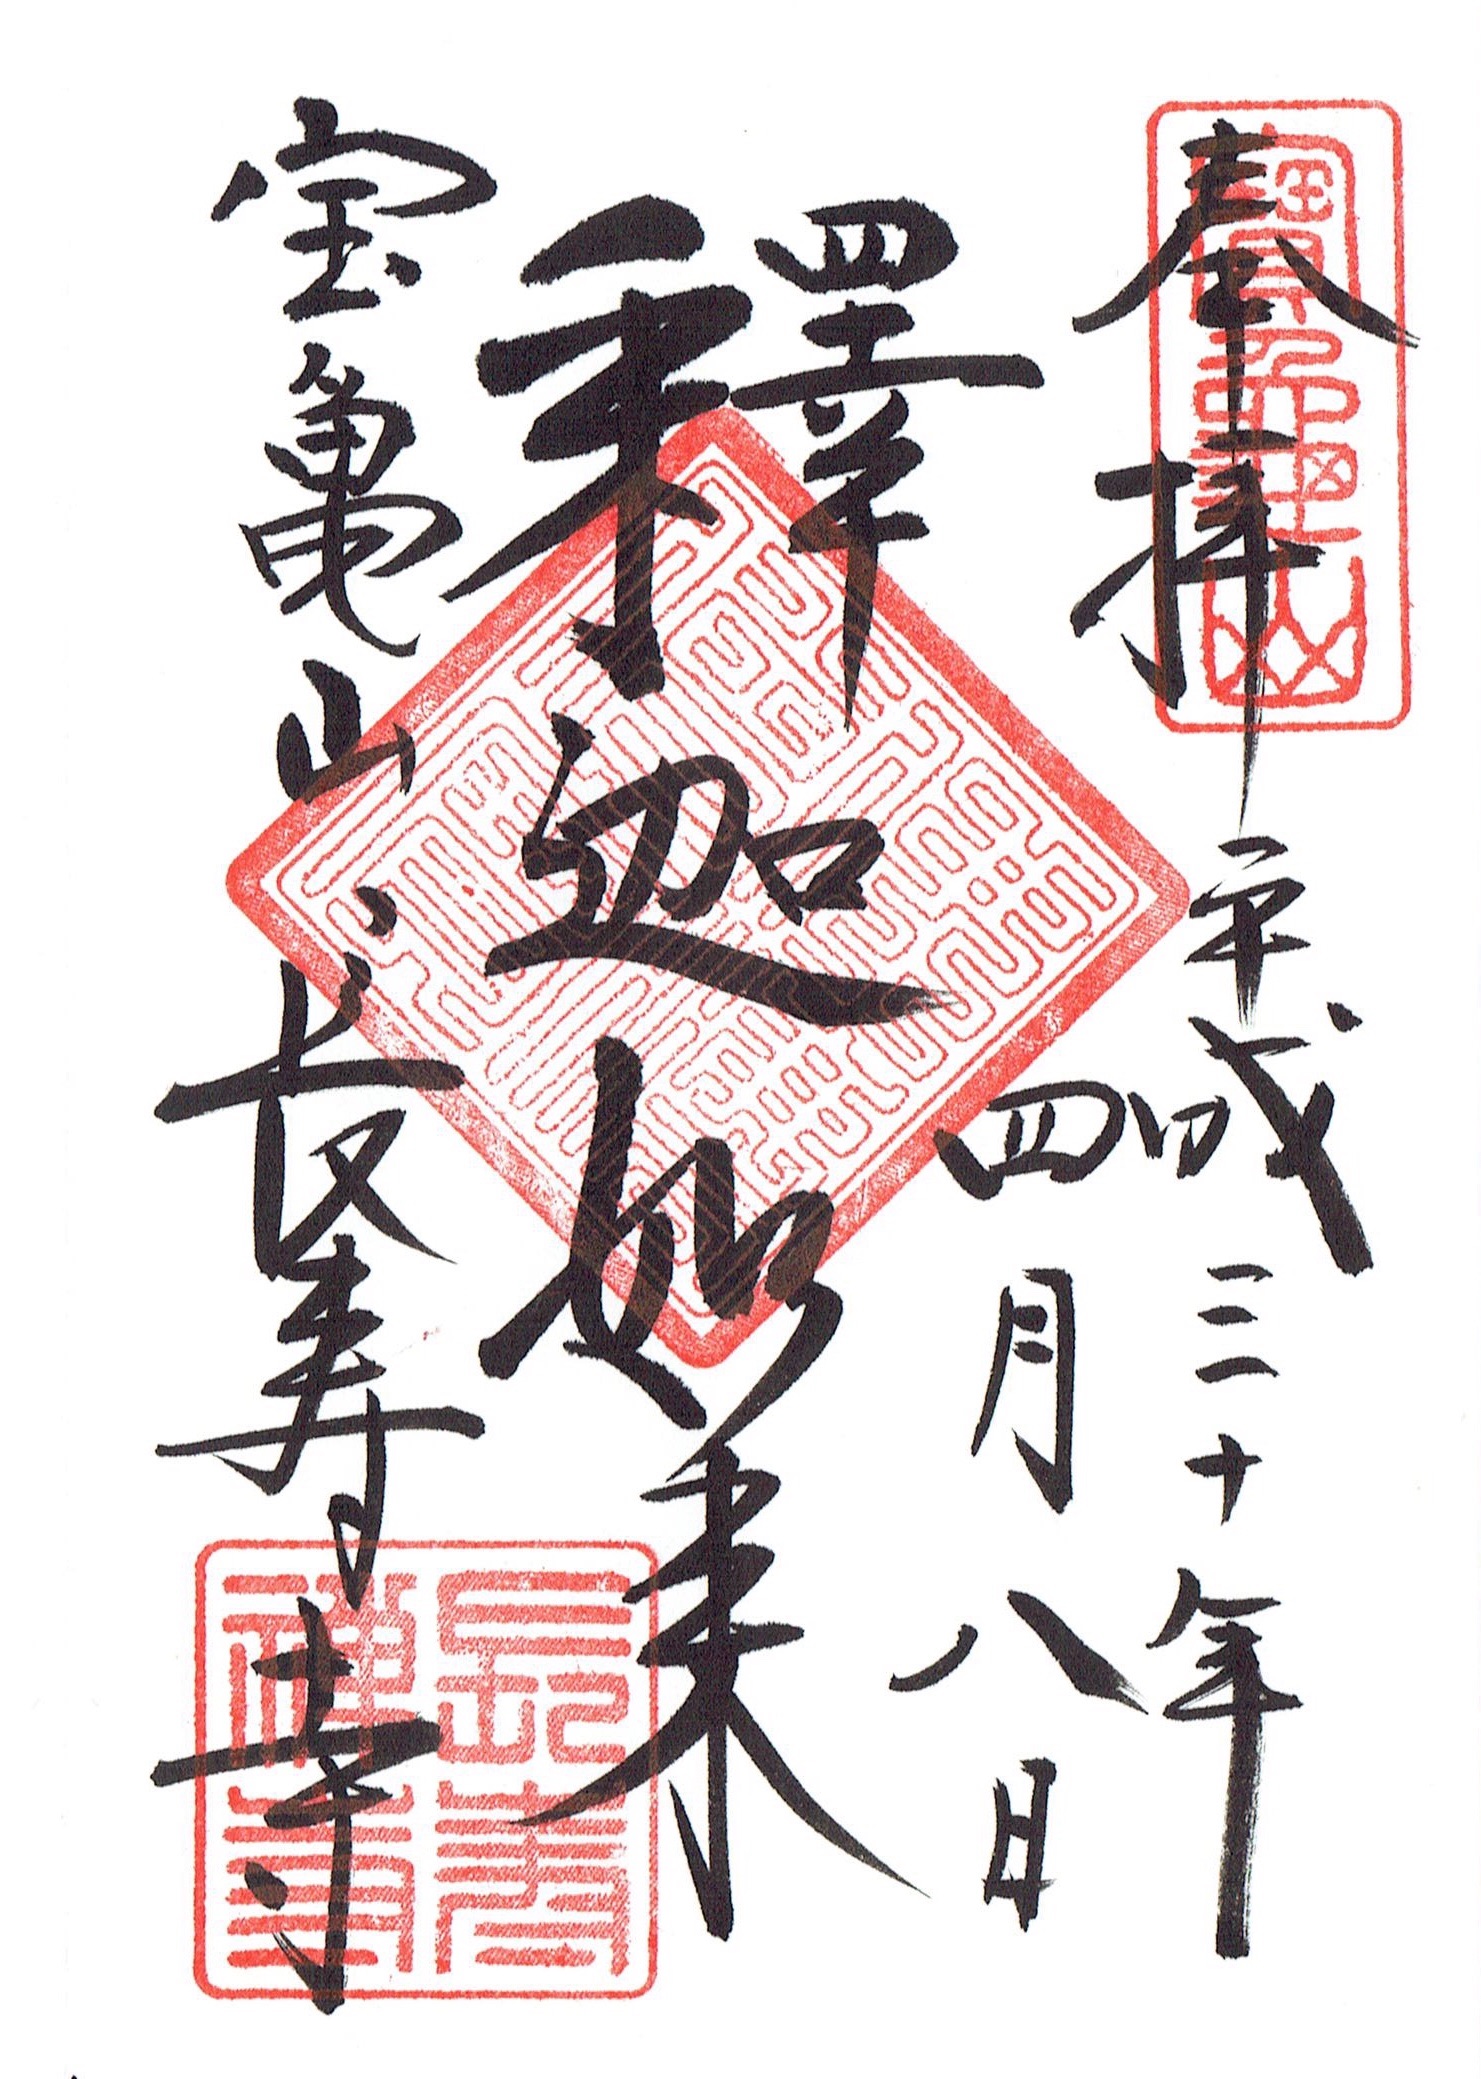 奉拝
平成三十年
四月八日
釋迦如来
宝亀山
長寿寺
寶亀山
長壽
禅寺